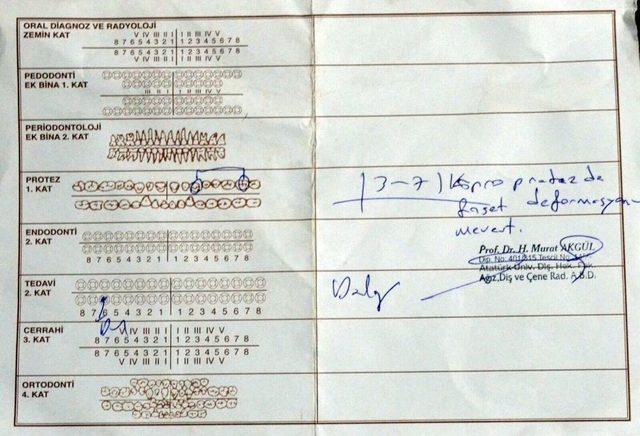 ORAL DİAGNOZ VE RADYOLOJİ
ZEMİN KAT
V IV III II I I II III IV V
8 7 6 5 4 3 2 1 1 2 3 4 5 6 7 8
8 7 6 5 4 3 2 1 1 2 3 4 5 6 7 8
V IV III II I I II III IV V
PEDODONTİ
EK BİNA 1. KAT
III II I I II III IV V
PERİODONTOLOJİ
EK BİNA 2. KAT
PROTEZ
1. KAT
3-7 Köpro protez de
faset deformasyonu
mevcut.
ENDODONTİ
2. KAT
8 7 6 5 4 3 2 1 1 2 3 4 5 6 7 8
Prof. Dr. H. Murat AKGÜL
Dip. No:
Atatürk Üniv. Diş. Hek. Fak.
Ağız, Diş ve Çene Rad. A.B.D.
TEDAVİ
2. KAT
8 7 6 5 4 3 2 1 1 2 3 4 5 6 7 8
CERRAHİ
3. KAT
V IV III II I I II III IV V
8 7 6 5 4 3 2 1 1 2 3 4 5 6 7 8
8 7 6 5 4 3 2 1 1 2 3 4 5 6 7 8
V IV III II I I II III IV V
ORTODONTİ
4. KAT